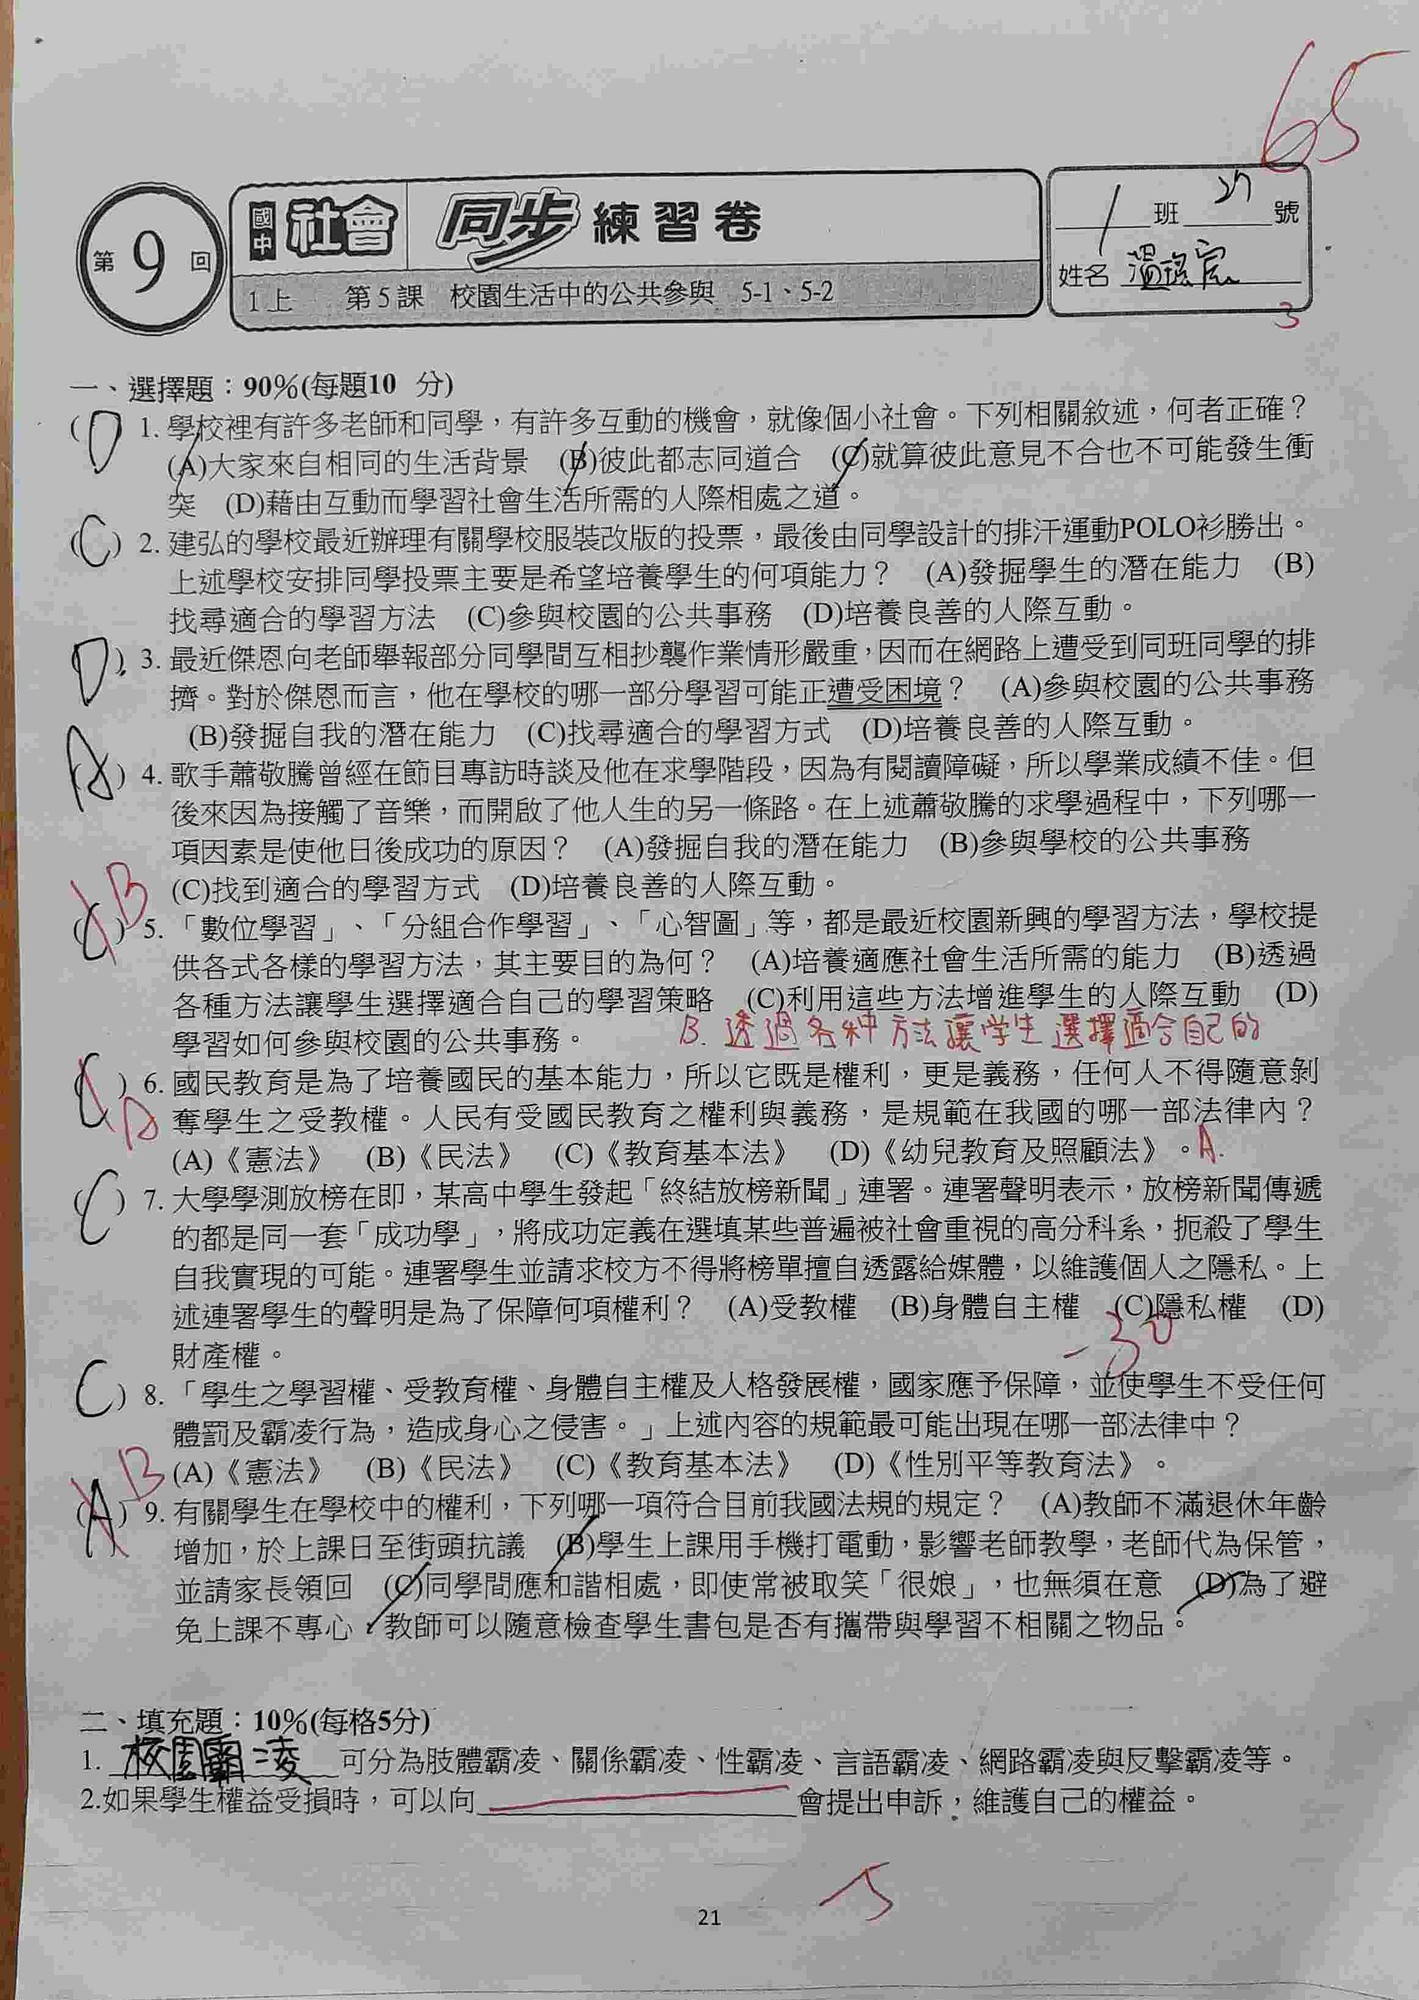 65
第9回
國中社會 同步練習卷
1上 第5課 校園生活中的公共參與 5-1、5-2
1班27號
姓名
3
一、選擇題：90%(每題10 分)
(D) 1. 學校裡有許多老師和同學，有許多互動的機會，就像個小社會。下列相關敘述，何者正確？
(A)大家來自相同的生活背景 (B)彼此都志同道合 (C)就算彼此意見不合也不可能發生衝
突 (D)藉由互動而學習社會生活所需的人際相處之道。
(C) 2. 建弘的學校最近辦理有關學校服裝改版的投票，最後由同學設計的排汗運動POLO衫勝出。
上述學校安排同學投票主要是希望培養學生的何項能力？ (A)發掘學生的潛在能力 (B)
找尋適合的學習方法 (C)參與校園的公共事務 (D)培養良善的人際互動。
(D) 3. 最近傑恩向老師舉報部分同學間互相抄襲作業情形嚴重，因而在網路上遭受到同班同學的排
擠。對於傑恩而言，他在學校的哪一部分學習可能正遭受困境？ (A)參與校園的公共事務
(B)發掘自我的潛在能力 (C)找尋適合的學習方式 (D)培養良善的人際互動。
(A) 4. 歌手蕭敬騰曾經在節目專訪時談及他在求學階段，因為有閱讀障礙，所以學業成績不佳。但
後來因為接觸了音樂，而開啟了他人生的另一條路。在上述蕭敬騰的求學過程中，下列哪一
項因素是使他日後成功的原因？ (A)發掘自我的潛在能力 (B)參與學校的公共事務
(C)找到適合的學習方式 (D)培養良善的人際互動。
B
(C) 5. 「數位學習」、「分組合作學習」、「心智圖」等，都是最近校園新興的學習方法，學校提
供各式各樣的學習方法，其主要目的為何？ (A)培養適應社會生活所需的能力 (B)透過
各種方法讓學生選擇適合自己的學習策略 (C)利用這些方法增進學生的人際互動 (D)
學習如何參與校園的公共事務。 B. 透過各种方法讓学生選擇適合自己的
(C) 6. 國民教育是為了培養國民的基本能力，所以它既是權利，更是義務，任何人不得隨意剝
A 奪學生之受教權。人民有受國民教育之權利與義務，是規範在我國的哪一部法律內？
(A)《憲法》 (B)《民法》 (C)《教育基本法》 (D)《幼兒教育及照顧法》。A.
(C) 7. 大學學測放榜在即，某高中學生發起「終結放榜新聞」連署。連署聲明表示，放榜新聞傳遞
的都是同一套「成功學」，將成功定義在選填某些普遍被社會重視的高分科系，扼殺了學生
自我實現的可能。連署學生並請求校方不得將榜單擅自透露給媒體，以維護個人之隱私。上
述連署學生的聲明是為了保障何項權利？ (A)受教權 (B)身體自主權 (C)隱私權 (D)
財產權。
-30
(C) 8. 「學生之學習權、受教育權、身體自主權及人格發展權，國家應予保障，並使學生不受任何
體罰及霸凌行為，造成身心之侵害。」上述內容的規範最可能出現在哪一部法律中？
B (A)《憲法》 (B)《民法》 (C)《教育基本法》 (D)《性別平等教育法》。
(A) 9. 有關學生在學校中的權利，下列哪一項符合目前我國法規的規定？ (A)教師不滿退休年齡
增加，於上課日至街頭抗議 (B)學生上課用手機打電動，影響老師教學，老師代為保管，
並請家長領回 (C)同學間應和諧相處，即使常被取笑「很娘」，也無須在意 (D)為了避
免上課不專心，教師可以隨意檢查學生書包是否有攜帶與學習不相關之物品。
二、填充題：10%(每格5分)
1. 校園霸凌 可分為肢體霸凌、關係霸凌、性霸凌、言語霸凌、網路霸凌與反擊霸凌等。
2.如果學生權益受損時，可以向 會提出申訴，維護自己的權益。
21